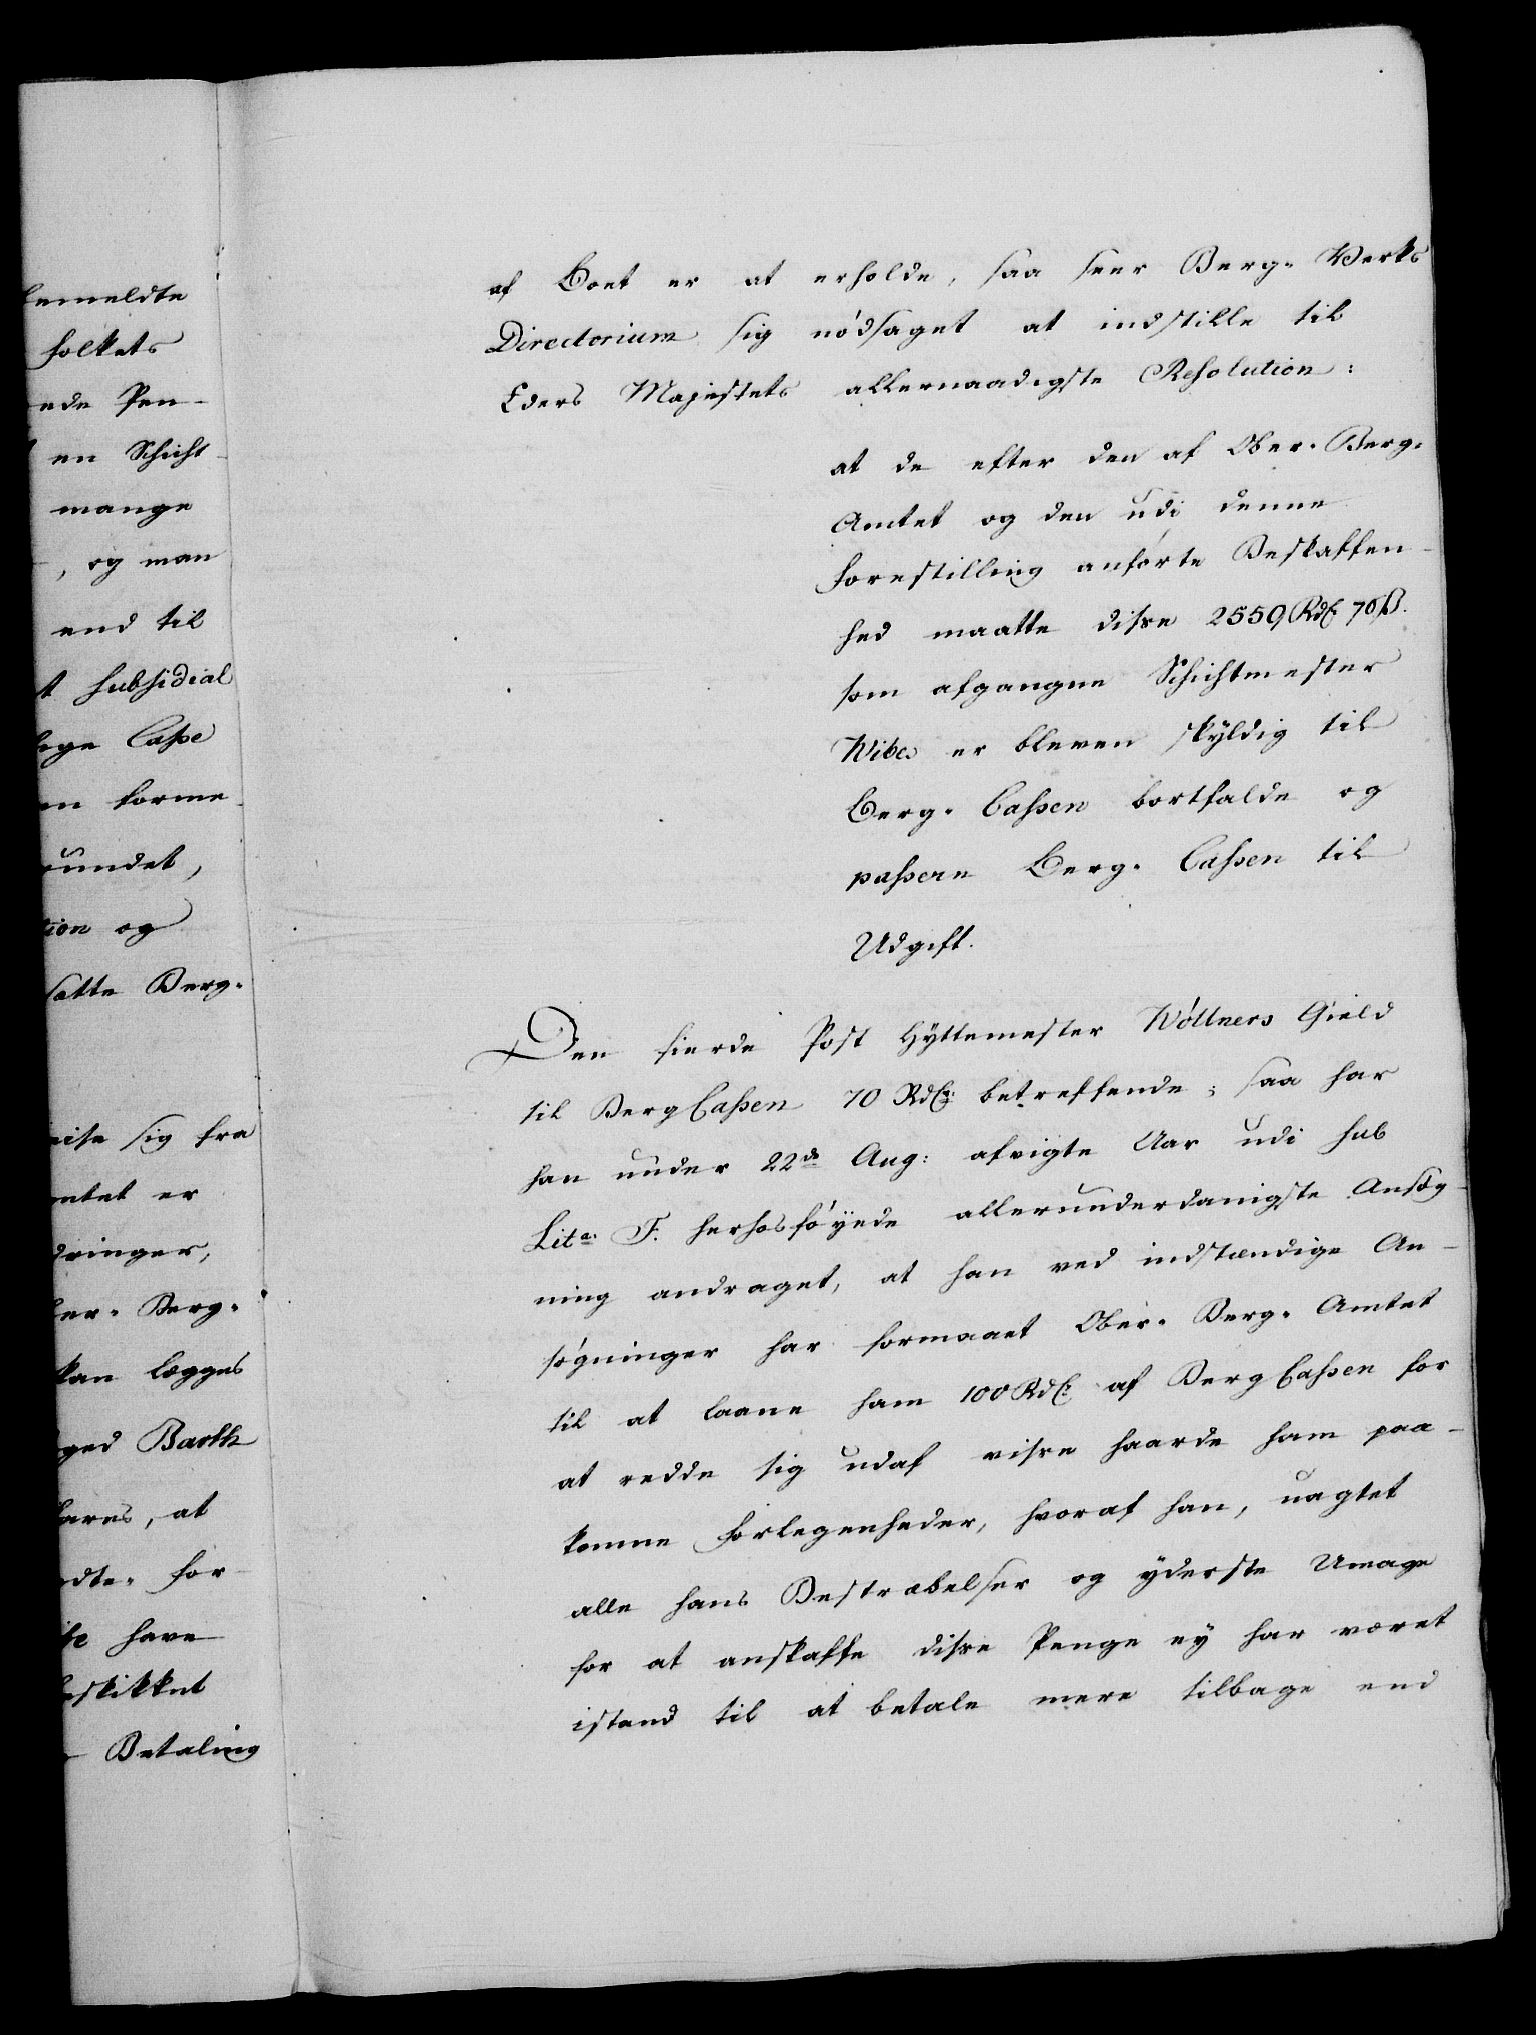 bemeldte
folkets
ede Pen-
en Schicht
mange
, og man
end til
t subsidial
Casse
en forme
rundet,
tion og
sætte Berg-
vise sig fra
mtet er
dringer,
ber- Berg-
kan lægges
ged Barth
fares, at
ndte- for
have
beskikket
Betaling
af Boet er at erholde, saa seer Berg- Verks
Directorium sig nödsaget at indstille til
Eders Majestets allernaadigste Resolution:
at de efter den af Ober- Berg-
Amtet og den udi denne
Forestilling anförte Beskaffen-
hed maatte disse 2559 Rdl. 70 ß.
som afgangne Schichtmester
Wibe er bleven skyldig til
Berg- Cassen bortfalde og
passere Berg- Cassen til
Udgift.
Den fierde Post Hyttemester Wöllners Gield
til Berg Cassen 70 Rdlr: betreffende; saa har
han under 22de Aug: afvigte Aar udi sub
Lita. F. herhosföyede allerunderdanigste Ansög-
ning andraget, at han ved indstændige An-
sögninger har formaaet Ober- Berg- Amtet
til at laane ham 100 Rdlr af Berg Cassen for
at redde sig udaf visse haarde ham paa-
komne Forlegenheder, hvoraf han, uagtet
alle hans Bestræbelser og yderste Umage
for at anskaffe disse Penge ey har været
istand til at betale mere tilbage end